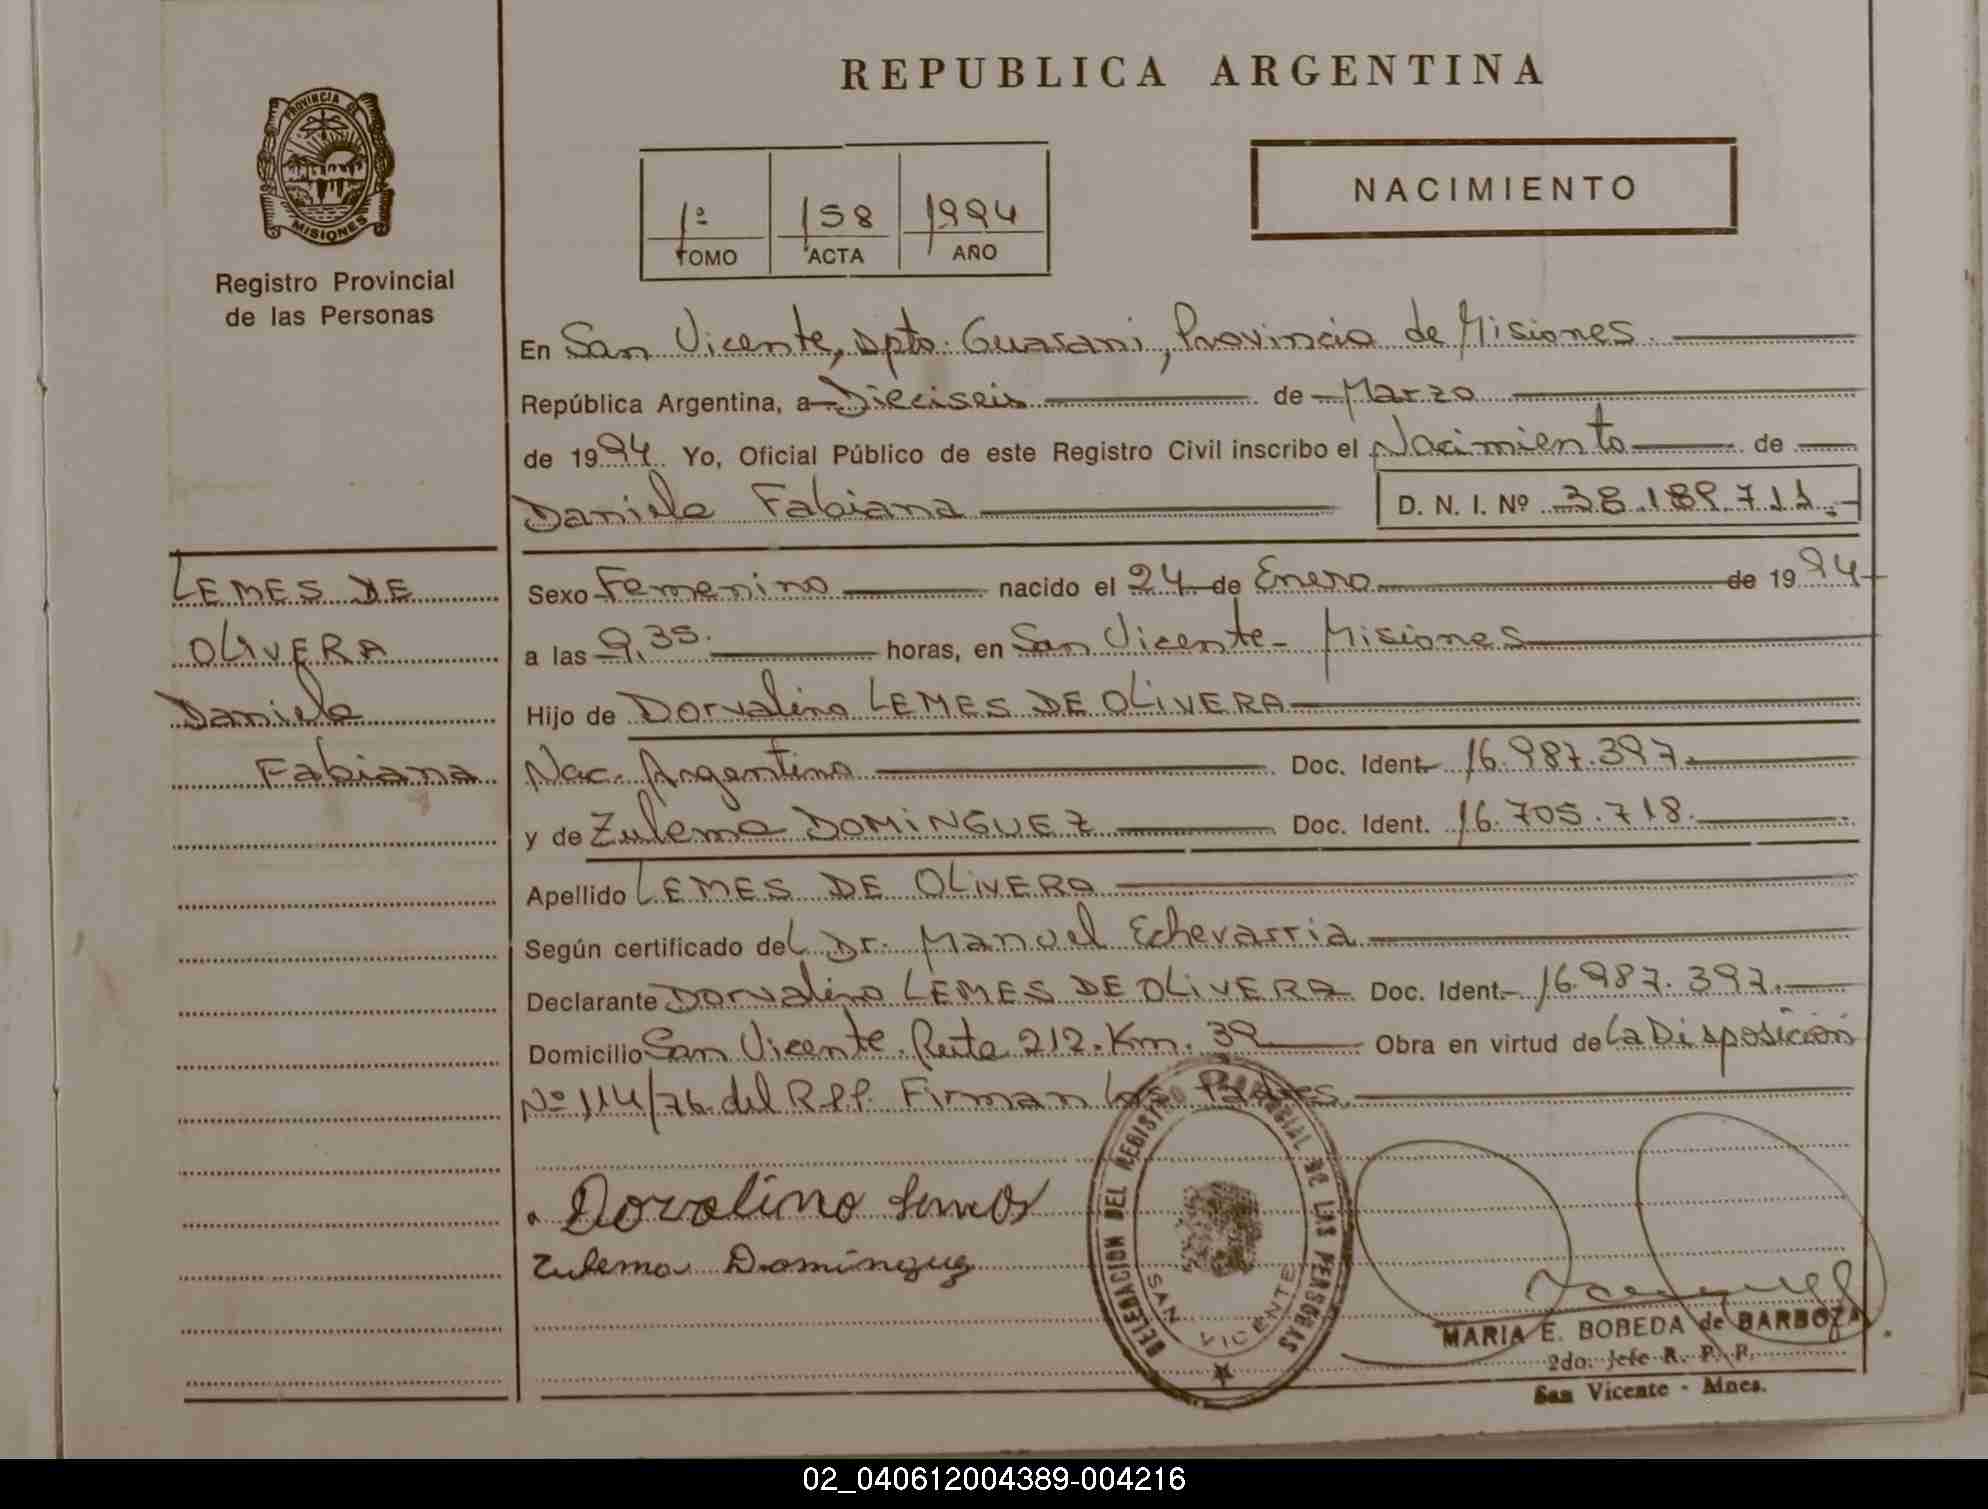 REPUBLICA ARGENTINA
PROVINCIA DE
MISIONES
Registro Provincial
de las Personas
1º 158 1994
TOMO ACTA AÑO
NACIMIENTO
En San Vicente, Dpto. Guarani, Provincia de Misiones.
República Argentina, a Dieciseis de Marzo
de 1994. Yo, Oficial Público de este Registro Civil inscribo el Nacimiento de
Daniela Fabiana D. N. I. Nº 38.189.711.-
LEMES DE
OLIVERA
Daniela
Fabiana
Sexo Femenino nacido el 24 de Enero de 1994
a las 9,35. horas, en San Vicente - Misiones
Hijo de Dorvalino LEMES DE OLIVERA
Nac. Argentino Doc. Ident. 16.987.397.
y de Zulema DOMINGUEZ Doc. Ident. 16.705.718.
Apellido LEMES DE OLIVERA
Según certificado del Dr. Manuel Echevarria
Declarante Dorvalino LEMES DE OLIVERA Doc. Ident. 16.987.397.
Domicilio San Vicente. Ruta 212. Km. 39 Obra en virtud de La Disposición
Nº 114/76 del R.P.P. Firman los Padres.
Dorvalino Lemos
Zulema Dominguez
DELEGACION DEL REGISTRO PROVINCIAL DE LAS PERSONAS
SAN VICENTE
MARIA E. BOBEDA de BARBOZA
2do. Jefe R. P. P.
San Vicente - Mnes.
02_040612004389-004216